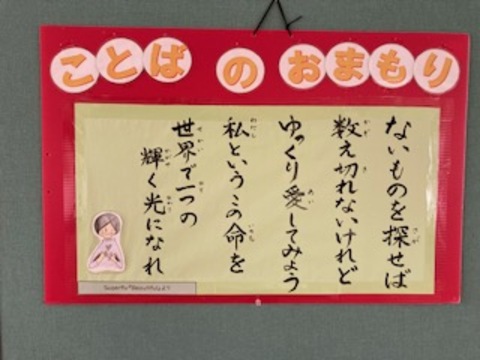 ことばのおまもり
ないものを探せば
数え切れないけれど
ゆっくり愛してみよう
私というこの命を
世界で一つの
輝く光になれ
Superfly「Beautiful」より